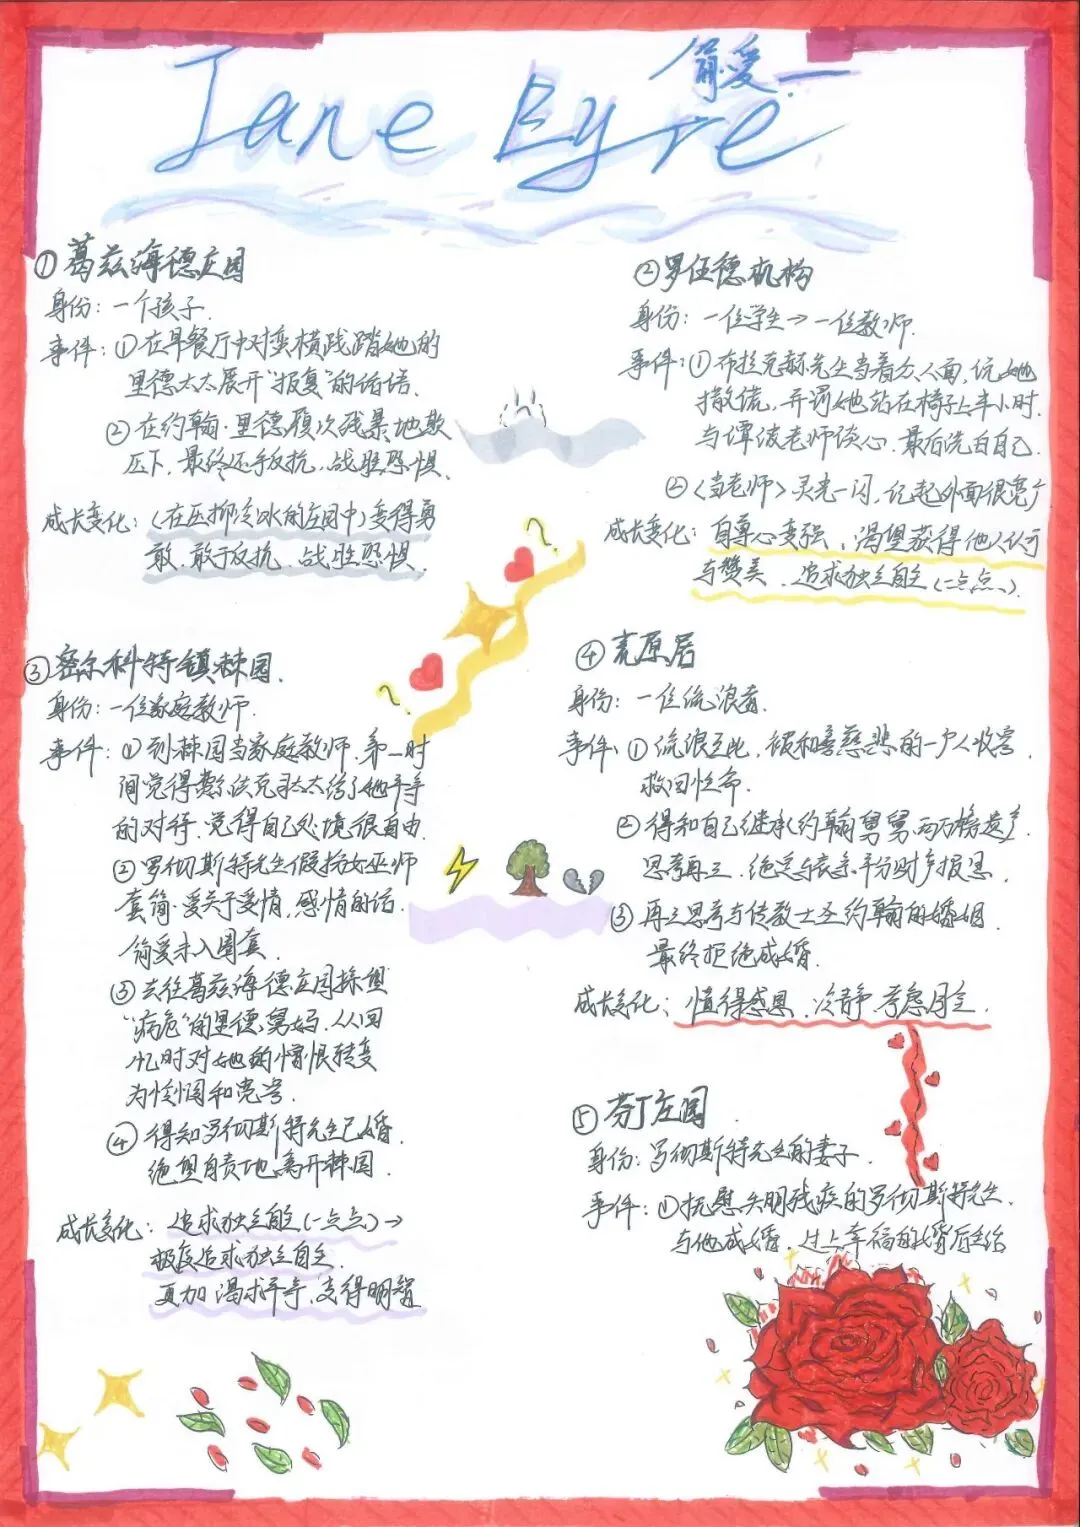 Jane Eyre
简爱.
①葛兹海德庄园
身份:一个孩子.
事件:①在早餐厅中对蛮横践踏她的
里德太太展开“报复”的话语.
②在约翰·里德屡次残暴地欺
压下,最终还手反抗.战胜恐惧.
成长变化:(在压抑冷冰的庄园中)变得勇
敢.敢于反抗.战胜恐惧.
②罗伍德机构
身份:一位学生→一位教师.
事件:①布拉克赫先生当着众人面,说她
撒谎,并罚她站在椅子上半小时.
与谭波老师谈心.最后洗白自己.
②〈当老师〉灵光一闪,记起外面很宽广
成长变化:自尊心变强、渴望获得他人认可
与赞美.追求独立自主(一点点).
③密尔科特镇棘园.
身份:一位家庭教师.
事件:①到棘园当家庭教师.第一时
间觉得费尔法克斯太太给了她平等
的对待.觉得自己处境很自由.
②罗彻斯特先生假扮女巫师
套简·爱关于爱情,感情的话.
简爱未入圈套.
③去往葛兹海德庄园探望
“病危”的里德舅妈.从回
忆时对她的憎恨转变
为怜悯和宽容.
④得知罗彻斯特先生已婚.
绝望自责地离开棘园.
成长变化:追求独立自主(一点点)→
极度追求独立自主.
更加渴求平等、变得明智
④荒原居
身份:一位流浪者.
事件:①流浪至此,被和善慈悲的一户人收容
救回性命.
②得知自己继承约翰舅舅两万榜遗产.
思考再三,绝定与表亲平分财产报恩.
③再三思考与传教士圣约翰的婚姻.
最终拒绝成婚.
成长变化:懂得感恩、冷静考虑周全.
⑤芬丁庄园
身份:罗彻斯特先生的妻子.
事件:①抚慰失明残疾的罗彻斯特先生.
与他成婚.过上幸福的婚后生活